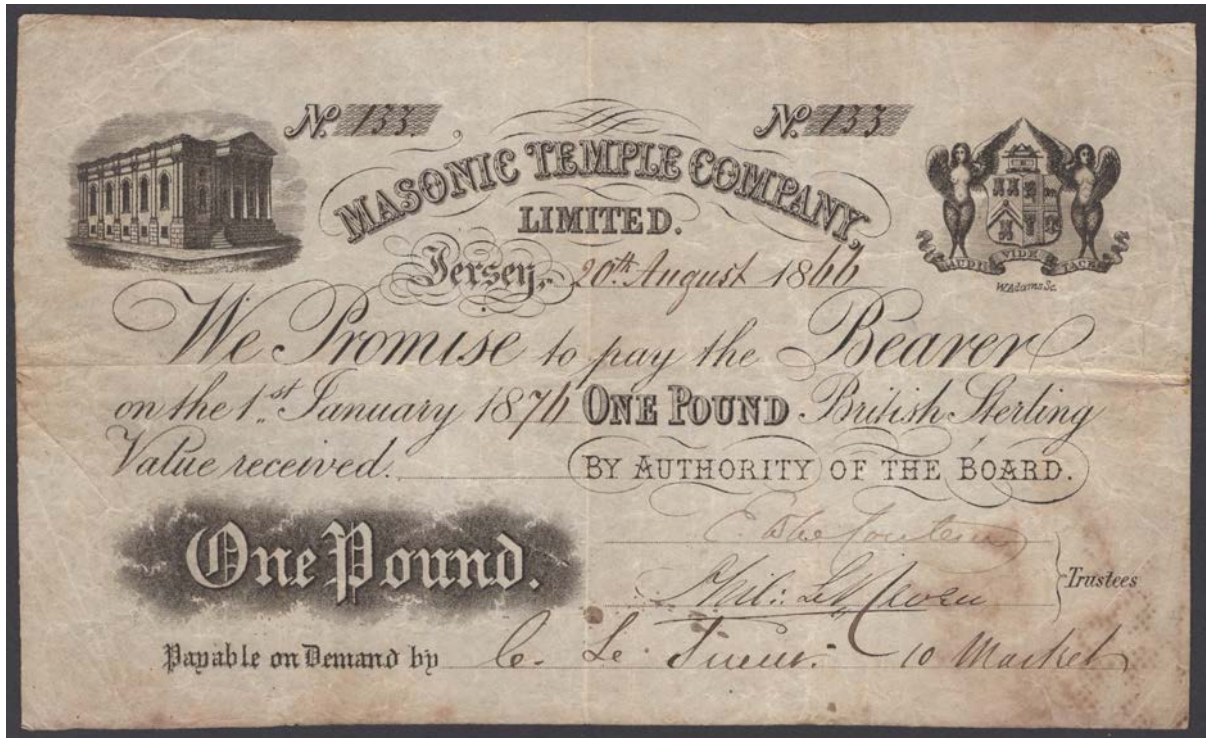 No. 133. No. 133
MASONIC TEMPLE COMPANY,
LIMITED.
AUDI VIDE TACE
W. Adams Sc.
Jersey, 20th August 1866
We Promise to pay the Bearer
on the 1st January 1876 ONE POUND British Sterling
Value received. BY AUTHORITY OF THE BOARD.
One Pound.
Phil:
Trustees
Payable on Demand by C. Le Sueur. 10 Market